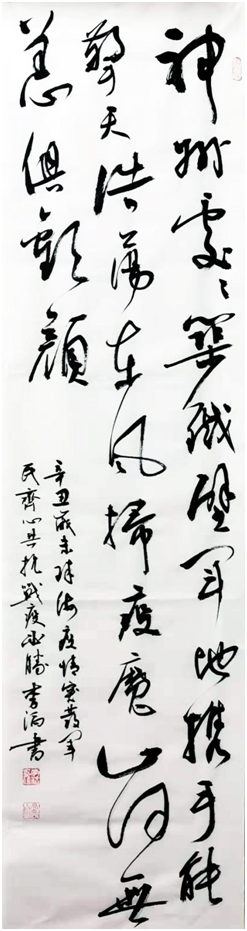 神州處々築鐵壁軍地携手能
擎天浩蕩东风掃疫魔山河無
恙俱歡顔
辛丑歲末珠海疫情突發軍
民齊心共抗戰疫必勝李書